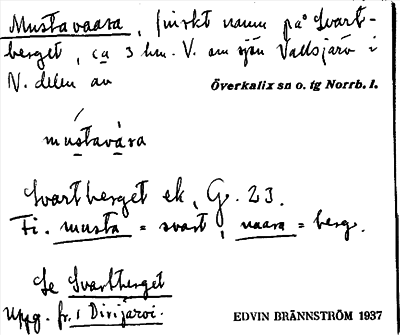 Mustavaara, finskt namn på Svart-
berget, ca 3 km. V. om sjön Vallsjärv i
N. delen av Överkalix sn o. tg Norrb. l.
mustavāra
Svartberget ek. G. 23.
Fi. musta = svart, vaara = berg.
Se Svartberget
Uppg. fr. 1 Dirijärvi.
EDVIN BRÄNNSTRÖM 1937